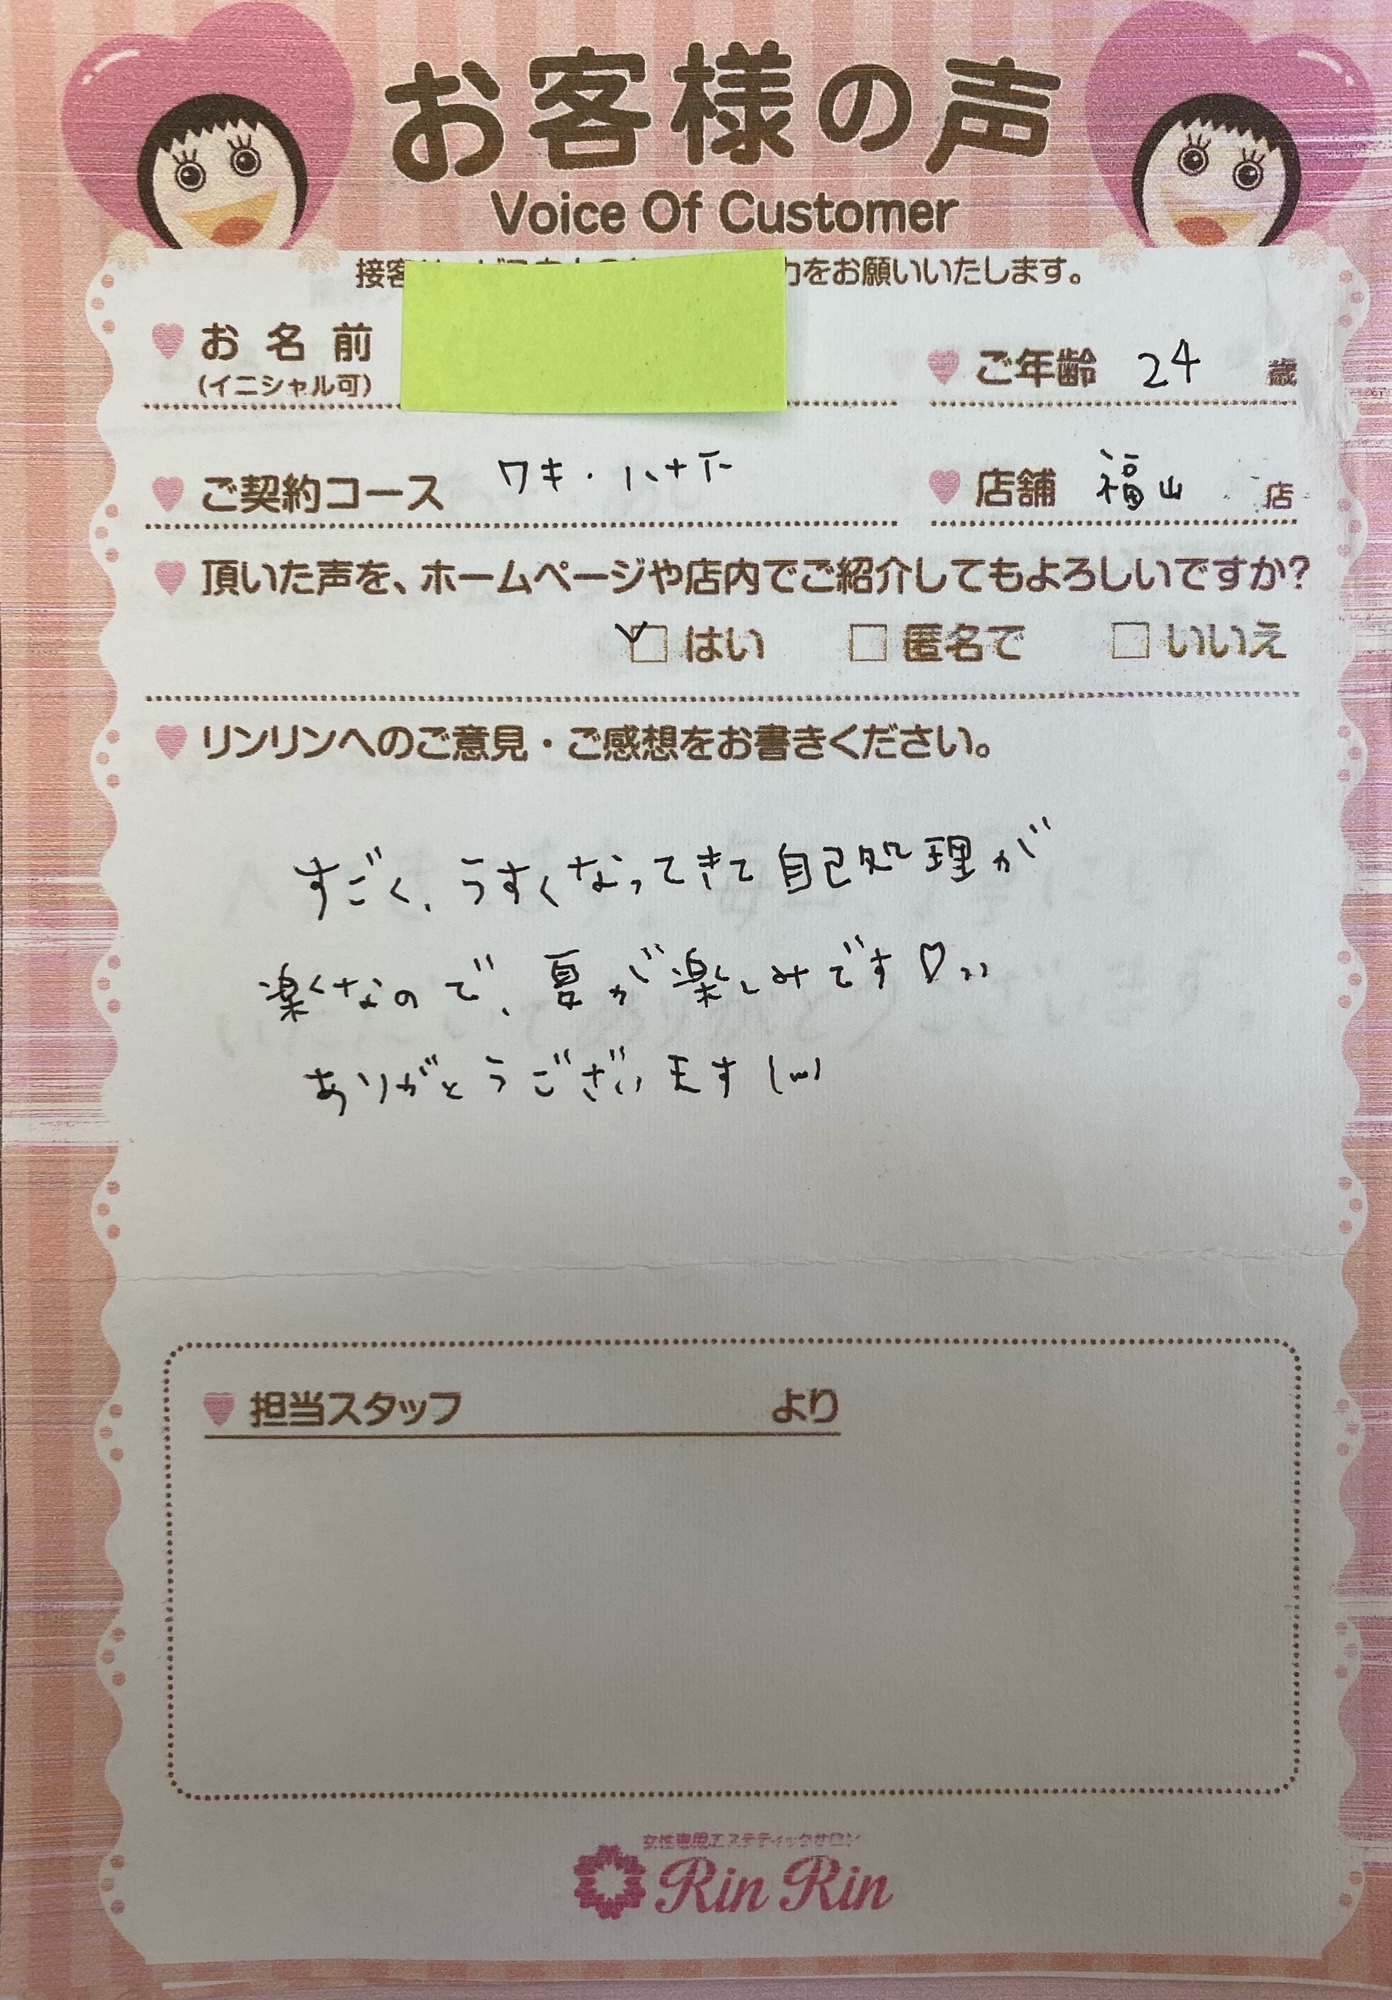 お客様の声
Voice Of Customer
接客 力をお願いいたします。
お名前
(イニシャル可)
ご年齢 24 歳
ご契約コース ワキ・ハナ下
店舗 福山 店
頂いた声を、ホームページや店内でご紹介してもよろしいですか?
はい 匿名で いいえ
リンリンへのご意見・ご感想をお書きください。
すごく、うすくなってきて自己処理が
楽なので、夏が楽しみです♡
ありがとうございます
担当スタッフ より
女性専用エステティックサロン
Rin Rin